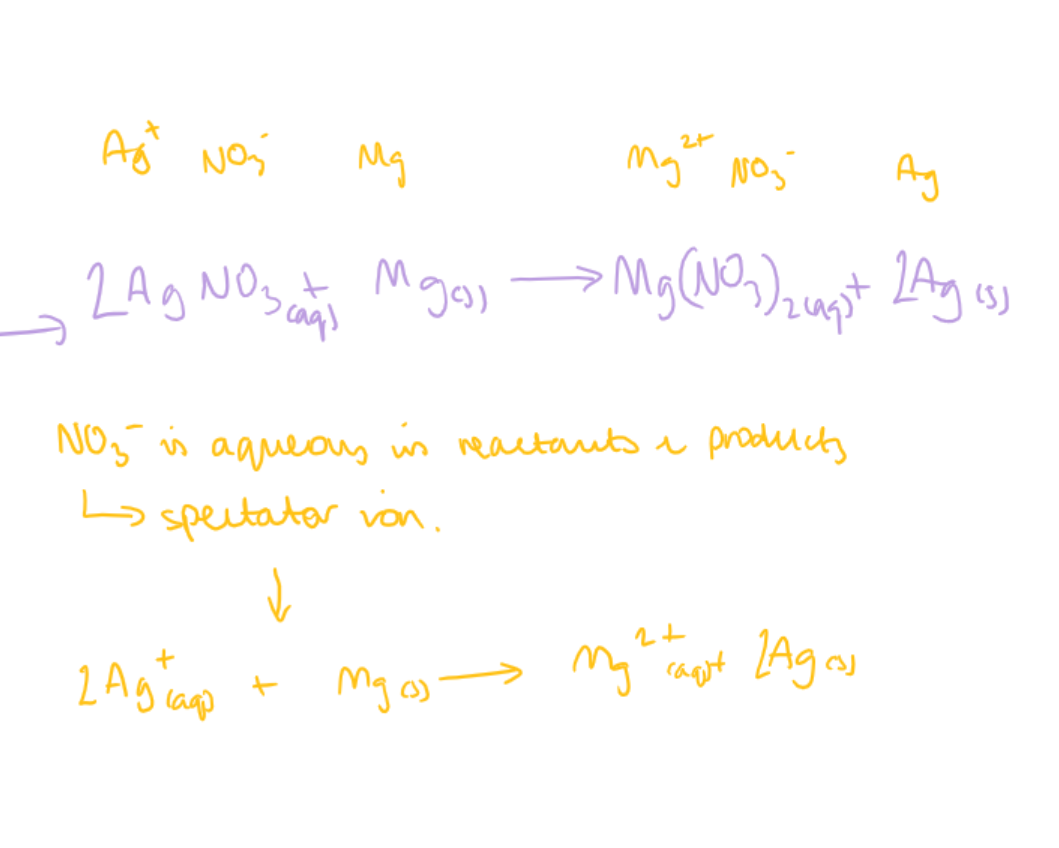 Ag⁺ NO₃⁻ Mg Mg²⁺ NO₃⁻ Ag
→ 2AgNO₃(aq) + Mg(s) → Mg(NO₃)₂(aq) + 2Ag(s)
NO₃⁻ is aqueous in reactants & products
↳ spectator ion.
↓
2Ag⁺(aq) + Mg(s) → Mg²⁺(aq) + 2Ag(s)